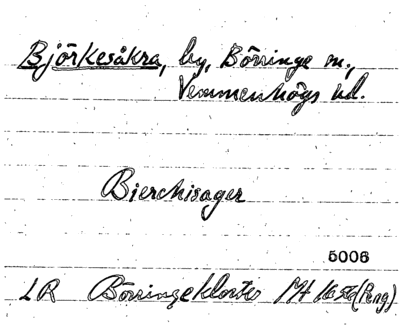 Björkesåkra, by, Börringe sn.,
Vemmenhögs hd.
Bierchisager
5006
LR Börringekloster (Peng)